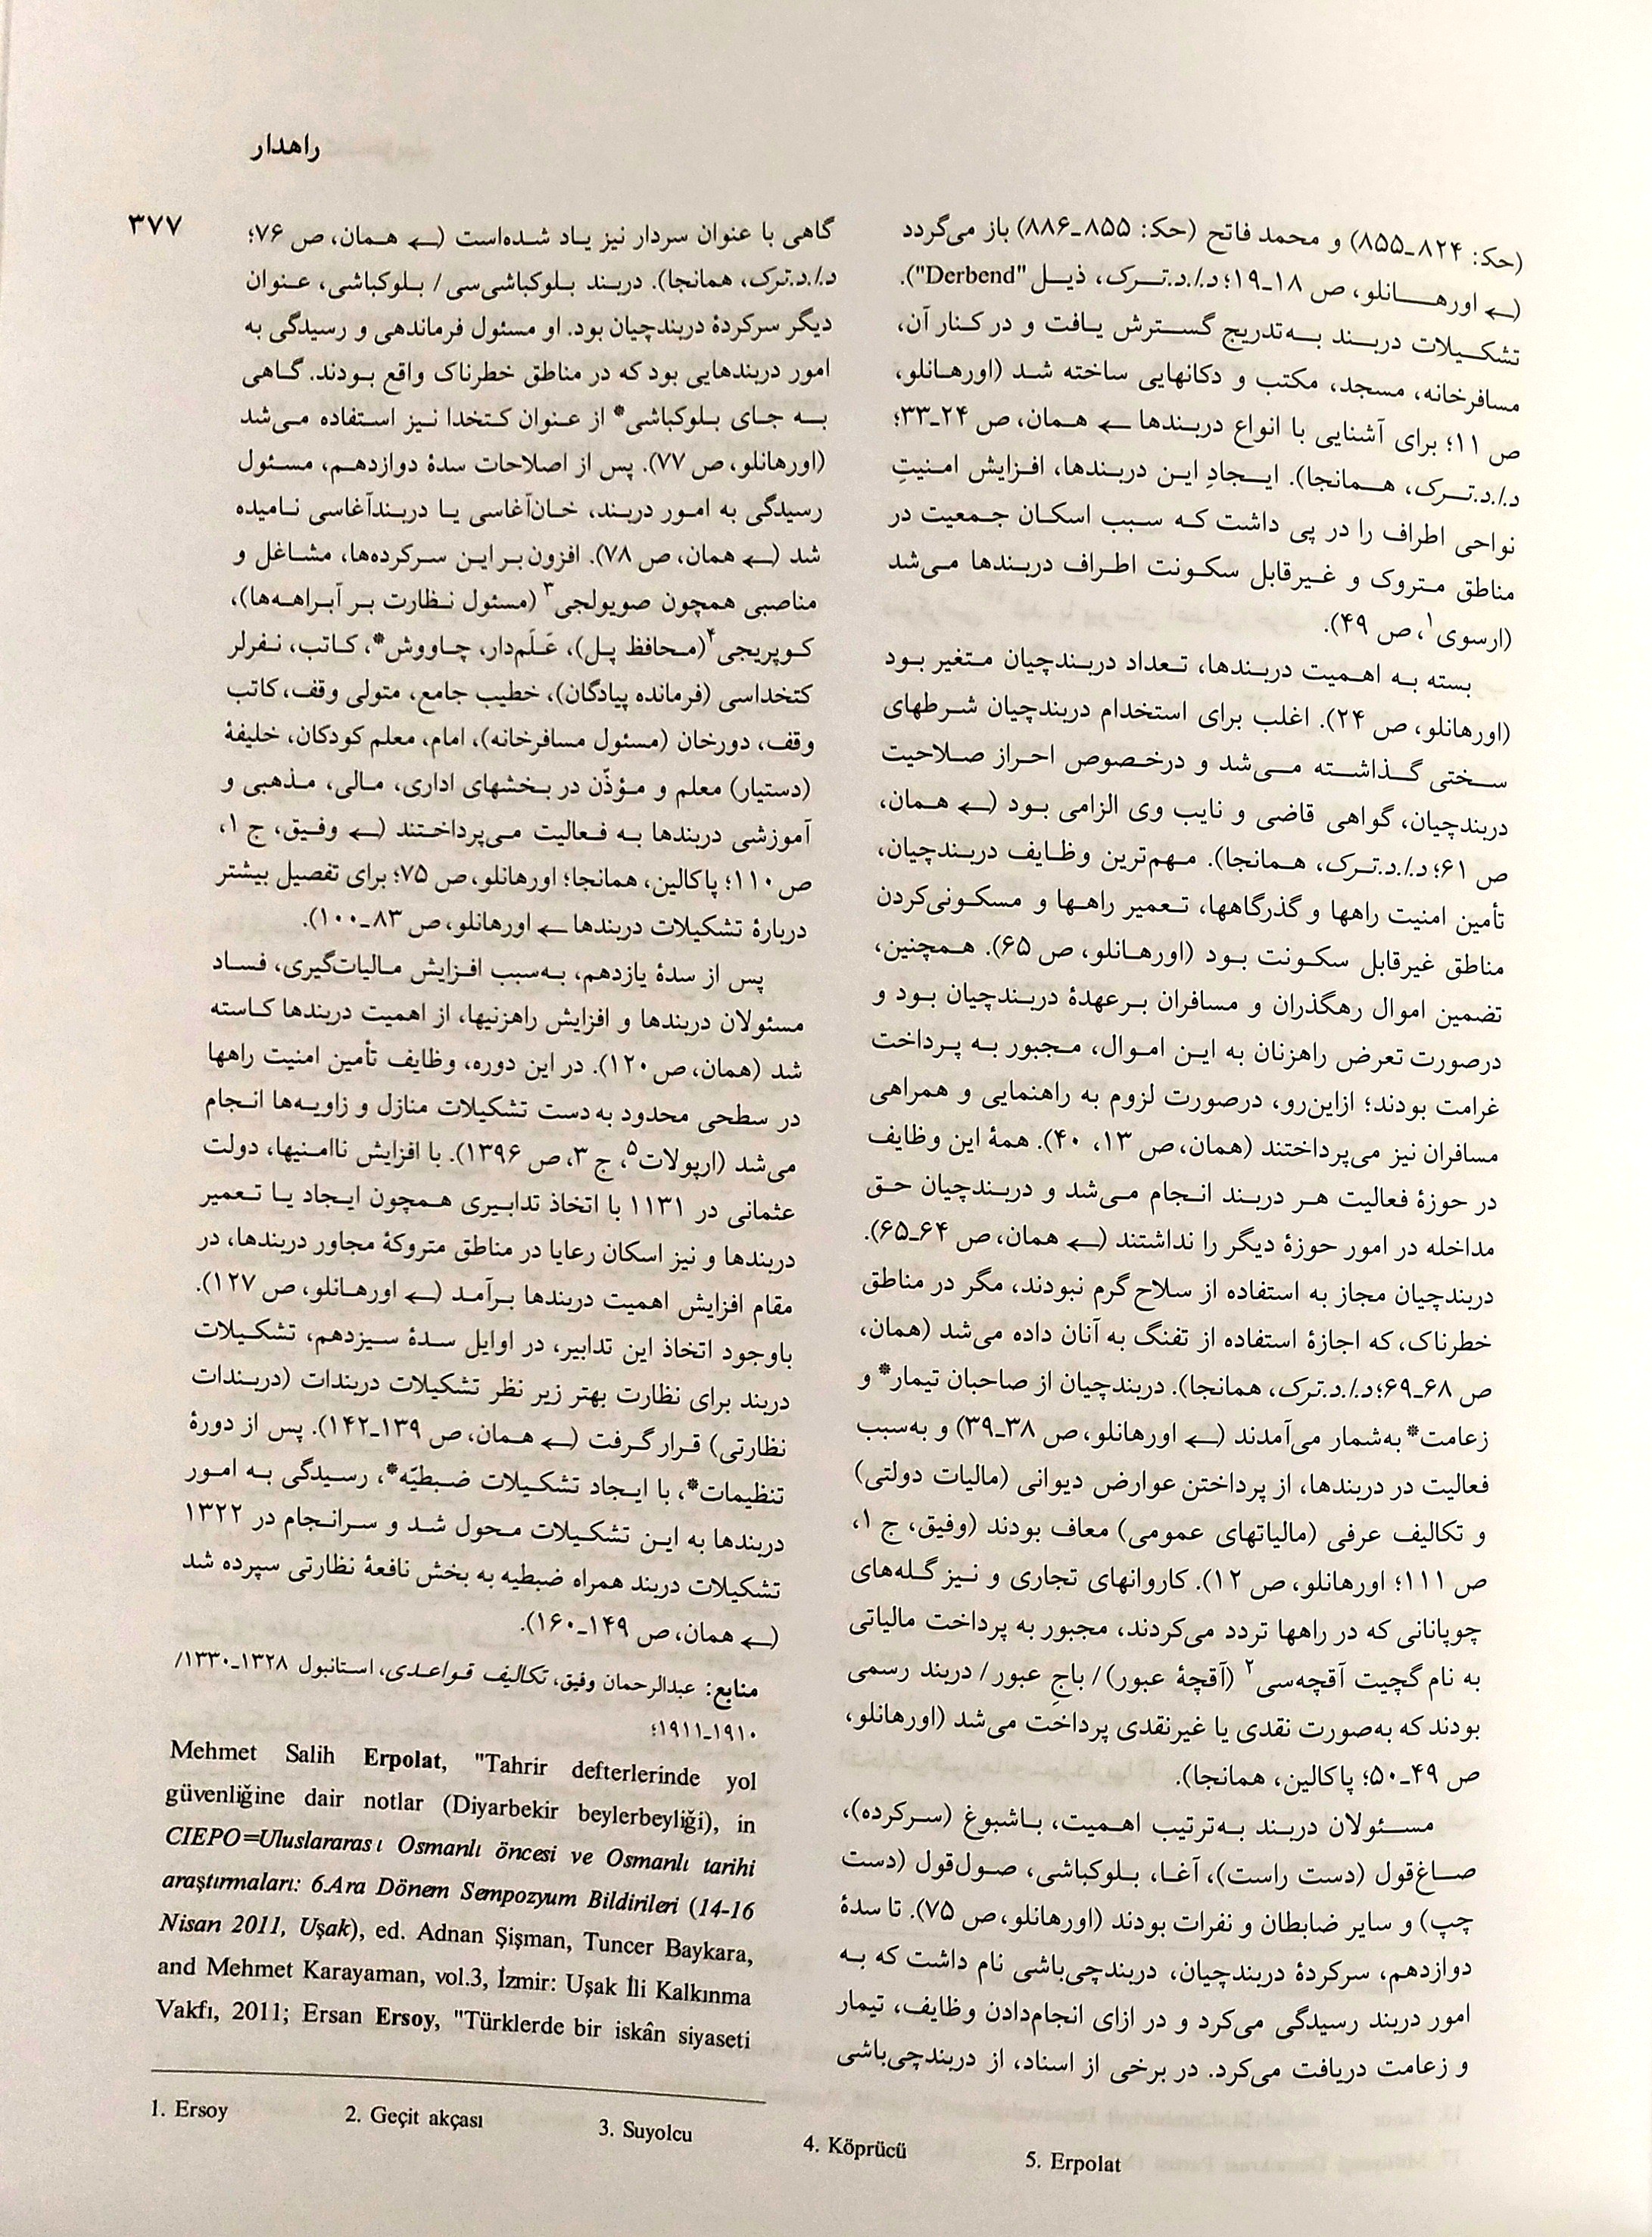 راهدار
۳۷۷
(حکـ: ۸۲۴ـ۸۵۵) و محمد فاتح (حکـ: ۸۵۵ـ۸۸۶) باز می‌گردد
(← اورهانلو، ص ۱۸ـ۱۹؛ د.ا.د.ترک، ذیل "Derbend").
تشکیلات دربند به‌تدریج گسترش یافت و در کنار آن،
مسافرخانه، مسجد، مکتب و دکانهایی ساخته شد (اورهانلو،
ص ۱۱؛ برای آشنایی با انواع دربندها ← همان، ص ۲۴ـ۳۳؛
د.ا.د.ترک، همانجا). ایجادِ این دربندها، افزایش امنیتِ
نواحی اطراف را در پی داشت که سبب اسکان جمعیت در
مناطق متروک و غیرقابل سکونت اطراف دربندها می‌شد
(ارسوی۱، ص ۴۹).
بسته به اهمیت دربندها، تعداد دربندچیان متغیر بود
(اورهانلو، ص ۲۴). اغلب برای استخدام دربندچیان شرطهای
سختی گذاشته می‌شد و درخصوص احراز صلاحیت
دربندچیان، گواهی قاضی و نایب وی الزامی بود (← همان،
ص ۶۱؛ د.ا.د.ترک، همانجا). مهم‌ترین وظایف دربندچیان،
تأمین امنیت راهها و گذرگاهها، تعمیر راهها و مسکونی‌کردن
مناطق غیرقابل سکونت بود (اورهانلو، ص ۶۵). همچنین،
تضمین اموال رهگذران و مسافران برعهدهٔ دربندچیان بود و
درصورت تعرض راهزنان به این اموال، مجبور به پرداخت
غرامت بودند؛ ازاین‌رو، درصورت لزوم به راهنمایی و همراهی
مسافران نیز می‌پرداختند (همان، ص ۱۳، ۴۰). همهٔ این وظایف
در حوزهٔ فعالیت هر دربند انجام می‌شد و دربندچیان حق
مداخله در امور حوزهٔ دیگر را نداشتند (← همان، ص ۶۴ـ۶۵).
دربندچیان مجاز به استفاده از سلاح گرم نبودند، مگر در مناطق
خطرناک، که اجازهٔ استفاده از تفنگ به آنان داده می‌شد (همان،
ص ۶۸ـ۶۹؛ د.ا.د.ترک، همانجا). دربندچیان از صاحبان تیمار* و
زعامت* به‌شمار می‌آمدند (← اورهانلو، ص ۳۸ـ۳۹) و به‌سبب
فعالیت در دربندها، از پرداختن عوارض دیوانی (مالیات دولتی)
و تکالیف عرفی (مالیاتهای عمومی) معاف بودند (وفیق، ج ۱،
ص ۱۱۱؛ اورهانلو، ص ۱۲). کاروانهای تجاری و نیز گله‌های
چوپانانی که در راهها تردد می‌کردند، مجبور به پرداخت مالیاتی
به نام گچیت آقچه‌سی۲ (آقچهٔ عبور)/ باجِ عبور/ دربند رسمی
بودند که به‌صورت نقدی یا غیرنقدی پرداخت می‌شد (اورهانلو،
ص ۴۹ـ۵۰؛ پاکالین، همانجا).
مسئولان دربند به‌ترتیب اهمیت، باشبوغ (سرکرده)،
صاغ‌قول (دست راست)، آغا، بلوکباشی، صول‌قول (دست
چپ) و سایر ضابطان و نفرات بودند (اورهانلو، ص ۷۵). تا سدهٔ
دوازدهم، سرکردهٔ دربندچیان، دربندچی‌باشی نام داشت که به
امور دربند رسیدگی می‌کرد و در ازای انجام‌دادن وظایف، تیمار
و زعامت دریافت می‌کرد. در برخی از اسناد، از دربندچی‌باشی
گاهی با عنوان سردار نیز یاد شده‌است (← همان، ص ۷۶؛
د.ا.د.ترک، همانجا). دربند بلوکباشی‌سی/ بلوکباشی، عنوان
دیگر سرکردهٔ دربندچیان بود. او مسئول فرماندهی و رسیدگی به
امور دربندهایی بود که در مناطق خطرناک واقع بودند. گاهی
به جای بلوکباشی* از عنوان کتخدا نیز استفاده می‌شد
(اورهانلو، ص ۷۷). پس از اصلاحات سدهٔ دوازدهم، مسئول
رسیدگی به امور دربند، خان‌آغاسی یا دربندآغاسی نامیده
شد (← همان، ص ۷۸). افزون بر این سرکرده‌ها، مشاغل و
مناصبی همچون صویولجی۳ (مسئول نظارت بر آبراهه‌ها)،
کوپریجی۴ (محافظ پل)، عَلَم‌دار، چاووش*، کاتب، نفرلر
کتخداسی (فرمانده پیادگان)، خطیب جامع، متولی وقف، کاتب
وقف، دورخان (مسئول مسافرخانه)، امام، معلم کودکان، خلیفهٔ
(دستیار) معلم و مؤذّن در بخشهای اداری، مالی، مذهبی و
آموزشی دربندها به فعالیت می‌پرداختند (← وفیق، ج ۱،
ص ۱۱۰؛ پاکالین، همانجا؛ اورهانلو، ص ۷۵؛ برای تفصیل بیشتر
دربارهٔ تشکیلات دربندها ← اورهانلو، ص ۸۳ـ۱۰۰).
پس از سدهٔ یازدهم، به‌سبب افزایش مالیات‌گیری، فساد
مسئولان دربندها و افزایش راهزنیها، از اهمیت دربندها کاسته
شد (همان، ص ۱۲۰). در این دوره، وظایف تأمین امنیت راهها
در سطحی محدود به دست تشکیلات منازل و زاویه‌ها انجام
می‌شد (ارپولات۵، ج ۳، ص ۱۳۹۶). با افزایش ناامنیها، دولت
عثمانی در ۱۱۳۱ با اتخاذ تدابیری همچون ایجاد یا تعمیر
دربندها و نیز اسکان رعایا در مناطق متروکهٔ مجاور دربندها، در
مقام افزایش اهمیت دربندها برآمد (← اورهانلو، ص ۱۲۷).
باوجود اتخاذ این تدابیر، در اوایل سدهٔ سیزدهم، تشکیلات
دربند برای نظارت بهتر زیر نظر تشکیلات دربندات (دربندات
نظارتی) قرار گرفت (← همان، ص ۱۳۹ـ۱۴۲). پس از دورهٔ
تنظیمات*، با ایجاد تشکیلات ضبطیّه*، رسیدگی به امور
دربندها به این تشکیلات محول شد و سرانجام در ۱۳۲۲
تشکیلات دربند همراه ضبطیه به بخش نافعهٔ نظارتی سپرده شد
(← همان، ص ۱۴۹ـ۱۶۰).
منابع: عبدالرحمان وفیق، تکالیف قواعدی، استانبول ۱۳۲۸ـ۱۳۳۰/
۱۹۱۰ـ۱۹۱۱؛
Mehmet Salih Erpolat, "Tahrir defterlerinde yol
güvenliğine dair notlar (Diyarbekir beylerbeyliği), in
CIEPO=Uluslararası Osmanlı öncesi ve Osmanlı tarihi
araştırmaları: 6.Ara Dönem Sempozyum Bildirileri (14-16
Nisan 2011, Uşak), ed. Adnan Şişman, Tuncer Baykara,
and Mehmet Karayaman, vol.3, İzmir: Uşak İli Kalkınma
Vakfı, 2011; Ersan Ersoy, "Türklerde bir iskân siyaseti
1. Ersoy 2. Geçit akçası 3. Suyolcu 4. Köprücü 5. Erpolat